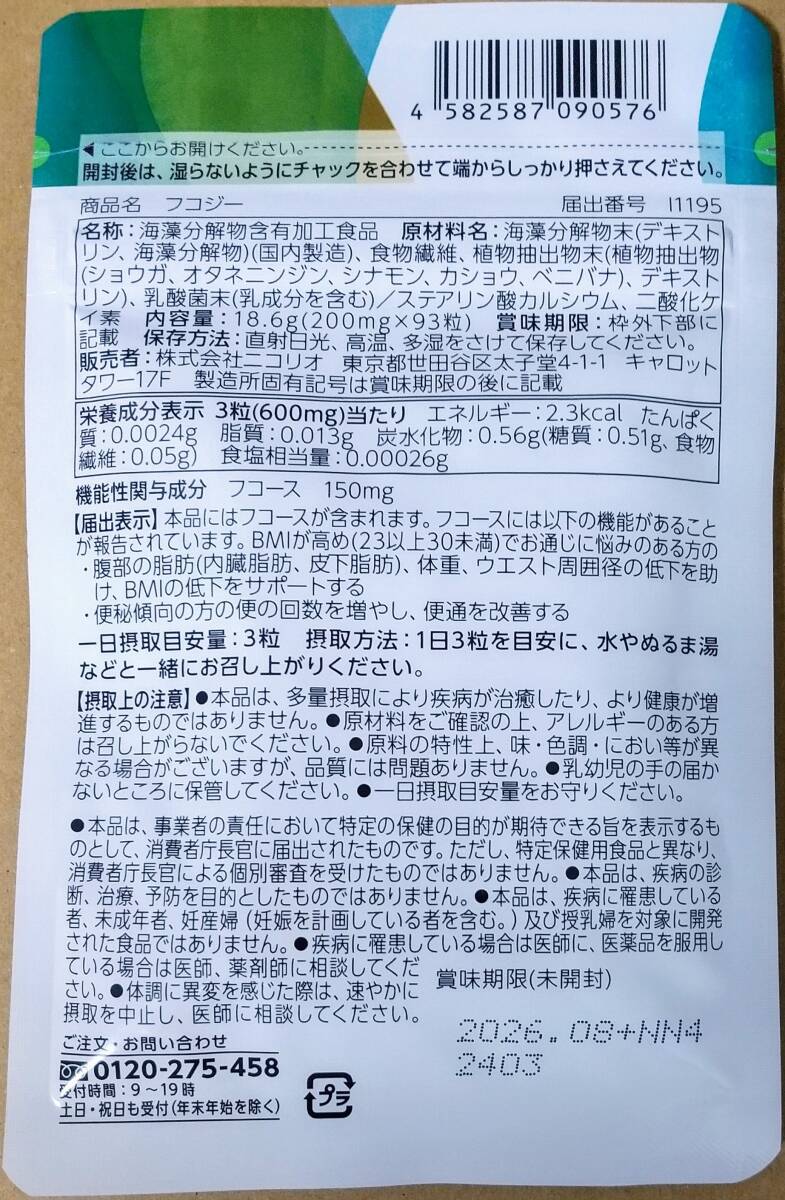 4 582587 090576
◀ここからお開けください。
開封後は、湿らないようにチャックを合わせて端からしっかり押さえてください。
商品名 フコジー 届出番号 I1195
名称：海藻分解物含有加工食品 原材料名：海藻分解物末(デキスト
リン、海藻分解物)(国内製造)、食物繊維、植物抽出物末(植物抽出物
(ショウガ、オタネニンジン、シナモン、カショウ、ベニバナ)、デキスト
リン)、乳酸菌末(乳成分を含む)／ステアリン酸カルシウム、二酸化ケ
イ素 内容量：18.6g(200mg×93粒) 賞味期限：枠外下部に
記載 保存方法：直射日光、高温、多湿をさけて保存してください。
販売者：株式会社ニコリオ 東京都世田谷区太子堂4-1-1 キャロット
タワー17F 製造所固有記号は賞味期限の後に記載
栄養成分表示 3粒(600mg)当たり エネルギー：2.3kcal たんぱく
質：0.0024g 脂質：0.013g 炭水化物：0.56g(糖質：0.51g、食物
繊維：0.05g) 食塩相当量：0.00026g
機能性関与成分 フコース 150mg
【届出表示】本品にはフコースが含まれます。フコースには以下の機能があること
が報告されています。BMIが高め(23以上30未満)でお通じに悩みのある方の
・腹部の脂肪(内臓脂肪、皮下脂肪)、体重、ウエスト周囲径の低下を助
け、BMIの低下をサポートする
・便秘傾向の方の便の回数を増やし、便通を改善する
一日摂取目安量：3粒 摂取方法：1日3粒を目安に、水やぬるま湯
などと一緒にお召し上がりください。
【摂取上の注意】●本品は、多量摂取により疾病が治癒したり、より健康が増
進するものではありません。●原材料をご確認の上、アレルギーのある方
は召し上がらないでください。●原料の特性上、味・色調・におい等が異
なる場合がございますが、品質には問題ありません。●乳幼児の手の届か
ないところに保管してください。●一日摂取目安量をお守りください。
●本品は、事業者の責任において特定の保健の目的が期待できる旨を表示するも
のとして、消費者庁長官に届出されたものです。ただし、特定保健用食品と異なり、
消費者庁長官による個別審査を受けたものではありません。●本品は、疾病の診
断、治療、予防を目的としたものではありません。●本品は、疾病に罹患している
者、未成年者、妊産婦(妊娠を計画している者を含む。)及び授乳婦を対象に開発
された食品ではありません。●疾病に罹患している場合は医師に、医薬品を服用し
ている場合は医師、薬剤師に相談してくだ
さい。●体調に異変を感じた際は、速やかに
摂取を中止し、医師に相談してください。
賞味期限(未開封)
2026.08+NN4
2403
ご注文・お問い合わせ
0120-275-458
受付時間：9～19時
土日・祝日も受付(年末年始を除く)
プラ